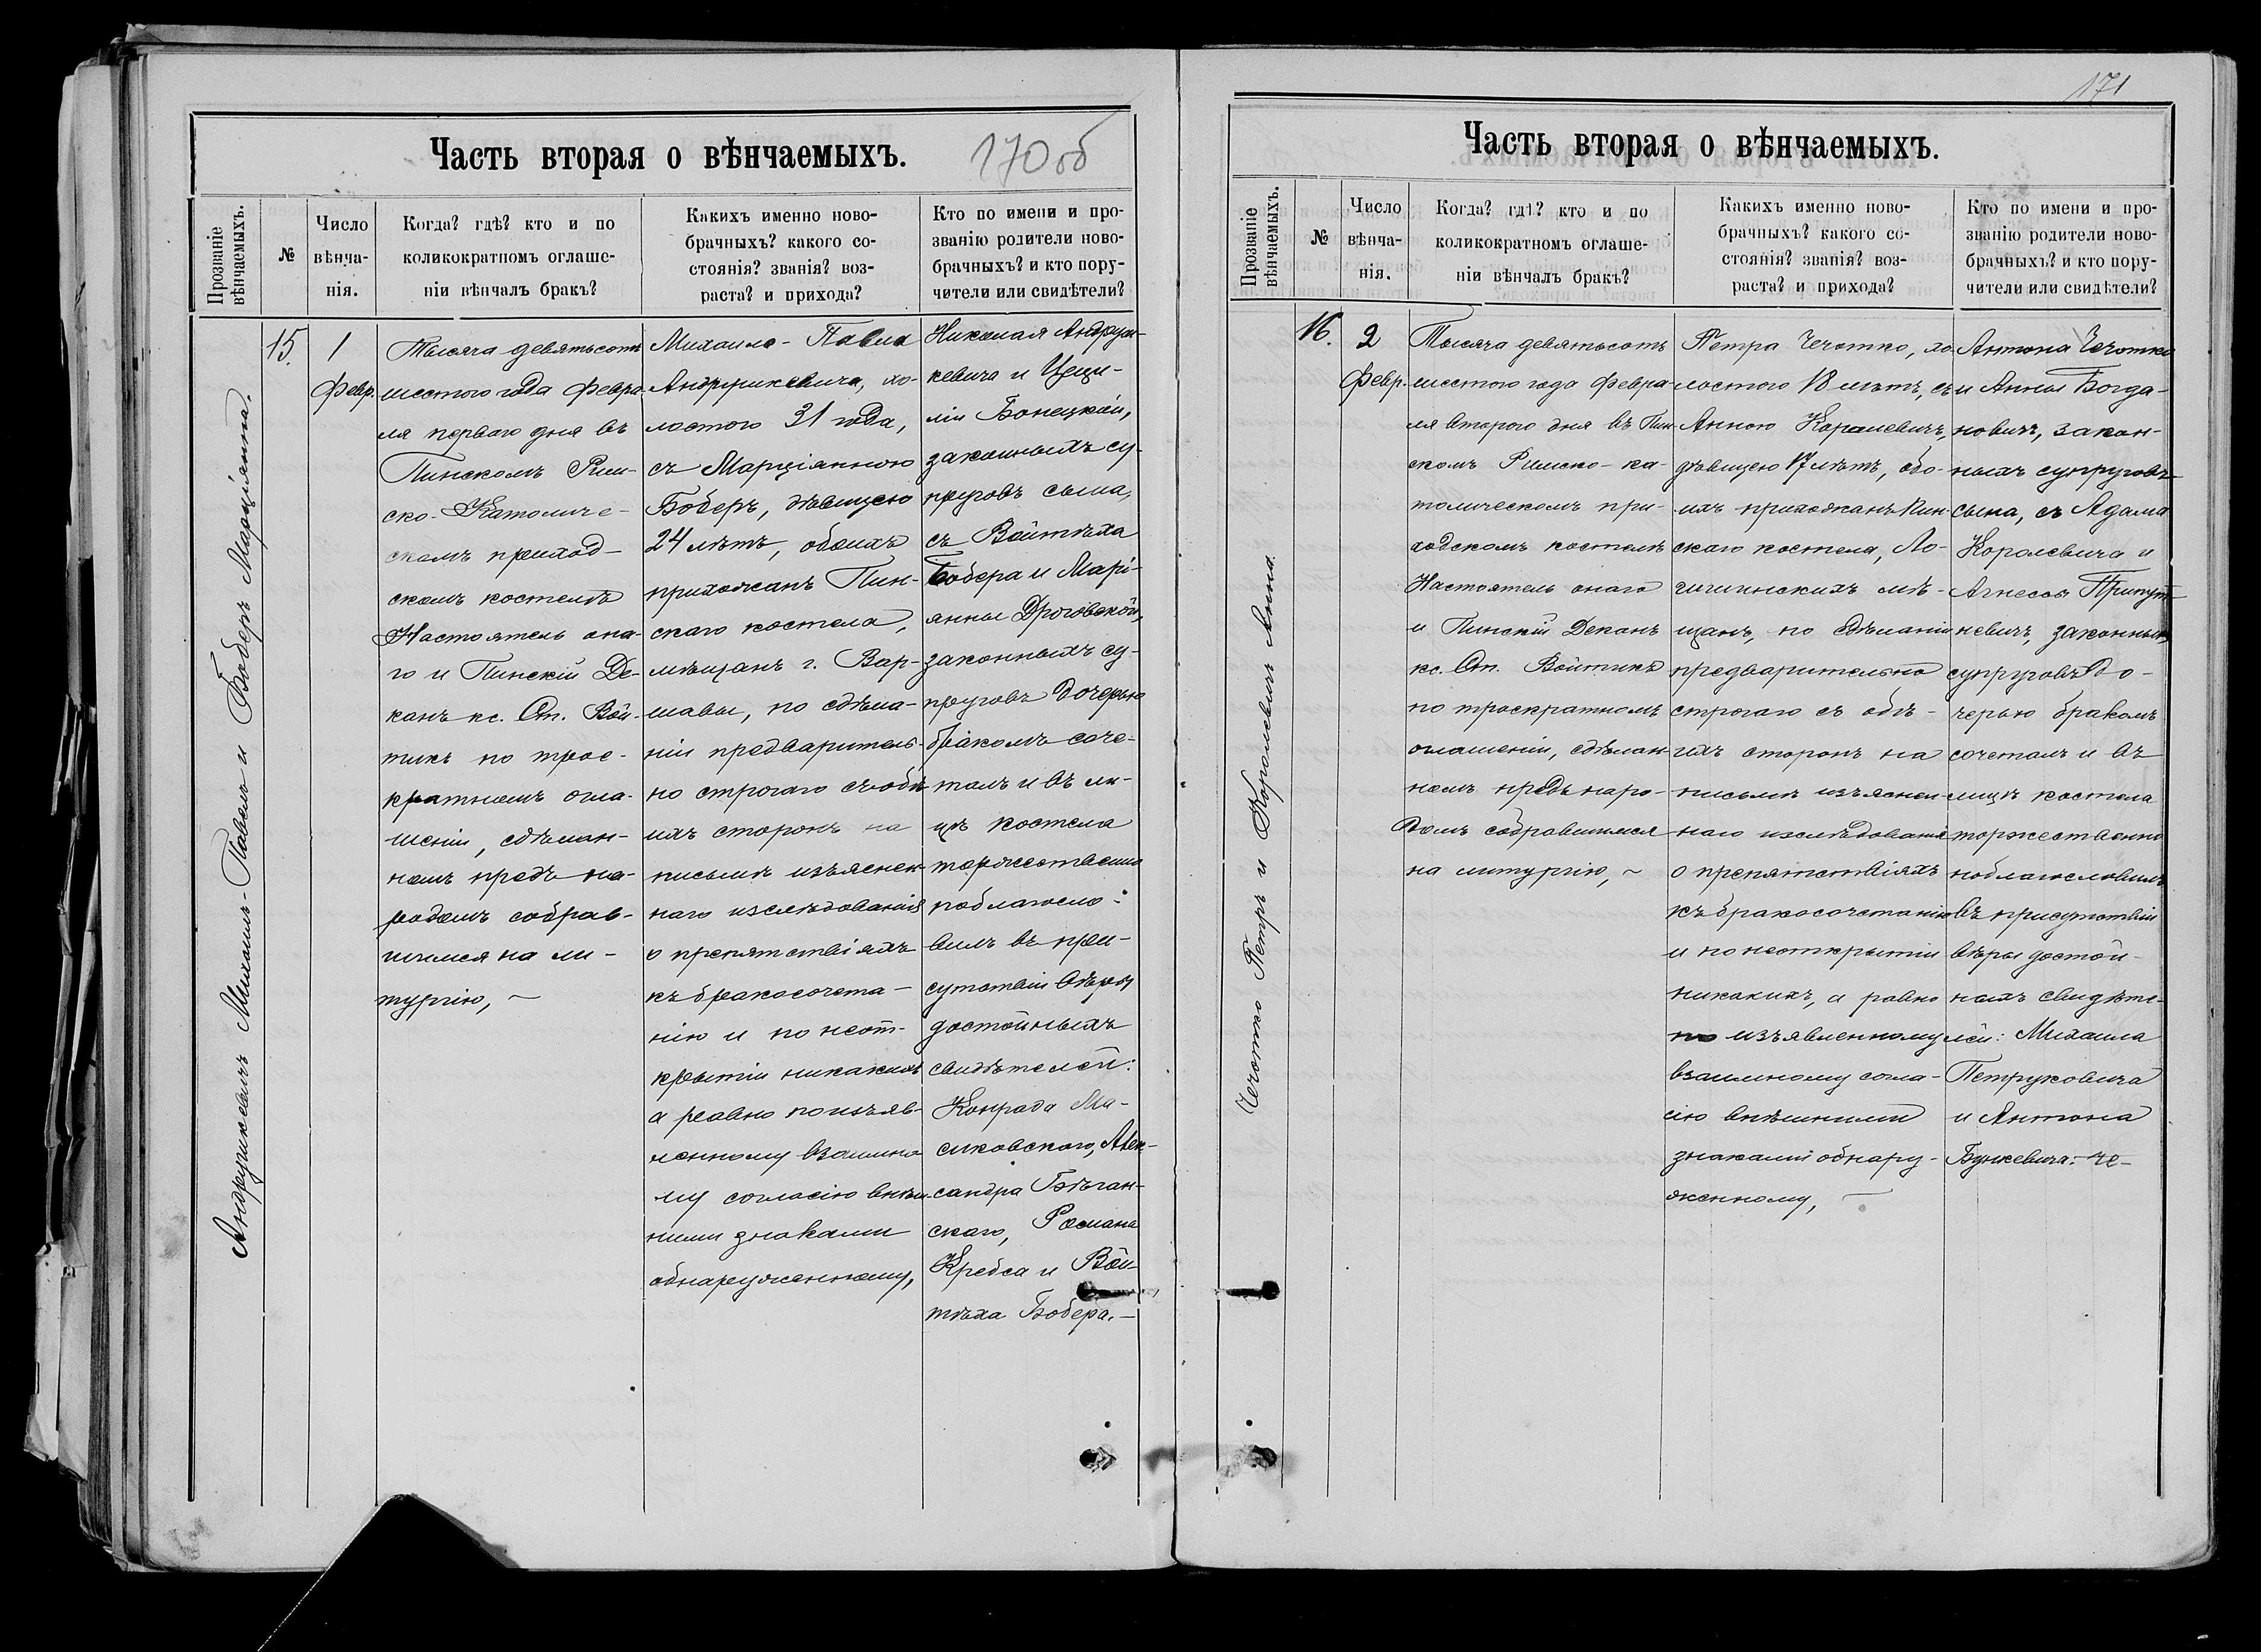 Часть вторая о вѣнчаемыхъ.
170об
Прозваніе
вѣнчаемыхъ.
№
Число
вѣнча-
нія.
Когда? гдѣ? кто и по
коликократномъ оглаше-
ніи вѣнчалъ бракъ?
Какихъ именно ново-
брачныхъ? какого со-
стоянія? званія? воз-
раста? и прихода?
Кто по имени и про-
званію родители ново-
брачныхъ? и кто пору-
чители или свидѣтели?
Андрушкевичъ Михаилъ-Павелъ и Боберъ Марціянна.
15.
1
Февр.
Тысяча девятьсотъ
шестого года февра-
ля перваго дня въ
Пинскомъ Рим-
ско-Католиче-
скомъ приход-
скомъ костелѣ
Настоятель она-
го и Пинскій Де-
канъ кс. Ст. Вой-
тикъ по трое-
кратномъ огла-
шеніи, сдѣлан-
номъ предъ на-
родомъ собрав-
шимся на ли-
тургію, ~
Михаила-Павла
Андрушкевича, хо-
лостого 31 года,
съ Марціянною
Боберъ, дѣвицею
24 лѣтъ, обоихъ
прихожанъ Пин-
скаго костела,
мѣщанъ г. Вар-
шавы, по сдѣла-
ніи предваритель-
но строгаго съ обѣ-
ихъ сторонъ на
письмѣ изъяснен-
наго изслѣдованія
о препятствіяхъ
къ бракосочета-
нію и по неот-
крытіи никакихъ
а равно по изъяв-
ленному взаимно-
му согласію внѣш-
ними знаками
обнаруженному,
Николая Андруш-
кевича и Цеци-
ліи Бонецкой,
законныхъ су-
пруговъ сына,
съ Войтѣха
Бобера и Марі-
анны Дроговской,
законныхъ су-
пруговъ дочерью
бракомъ соче-
талъ и въ ли-
цѣ костела
торжественно
поблагосло-
вилъ въ при-
сутствіи вѣры
достойныхъ
свидѣтелей:
Конрада Ма-
сиковского, Алек-
сандра Бѣган-
скаго, Романа
Кребса и Вой-
тѣха Бобера.—
171
Часть вторая о вѣнчаемыхъ.
Прозваніе
вѣнчаемыхъ.
№
Число
вѣнча-
нія.
Когда? гдѣ? кто и по
коликократномъ оглаше-
ніи вѣнчалъ бракъ?
Какихъ именно ново-
брачныхъ? какого со-
стоянія? званія? воз-
раста? и прихода?
Кто по имени и про-
званію родители ново-
брачныхъ? и кто пору-
чители или свидѣтели?
Чечотко Петръ и Королевичъ Анна.
16.
2
Февр.
Тысяча девятьсотъ
шестого года февра-
ля второго дня въ Пин-
скомъ Римско-ка-
толическомъ при-
ходскомъ костелѣ
Настоятель онаго
и Пинскій Деканъ
кс. Ст. Войтикъ
по троекратномъ
оглашеніи, сдѣлан-
номъ предъ наро-
домъ собравшимся
на литургію, ~
Петра Чечотко, хо-
лостого 18 лѣтъ, съ
Анною Королевичъ,
дѣвицею 17 лѣтъ, обо-
ихъ прихожанъ Пин-
скаго костела, Ло-
гишинскихъ мѣ-
щанъ, по сдѣланіи
предварительно
строгаго съ обѣ-
ихъ сторонъ на
письмѣ изъяснен-
наго изслѣдованія
о препятствіяхъ
къ бракосочетанію
и по неоткрытіи
никакихъ, а равно
по изъявленному
взаимному согла-
сію внѣшними
знаками обнару-
женному, —
Антона Чечотко
и Анны Богда-
новичъ, закон-
ныхъ супруговъ
сына, съ Адама
Королевича и
Агнессы Припут-
невичъ, законныхъ
супруговъ до-
черью бракомъ
сочеталъ и въ
лицѣ костела
торжественно
поблагословилъ
въ присутствіи
вѣры достой-
ныхъ свидѣте-
лей: Михаила
Петруковича
и Антона